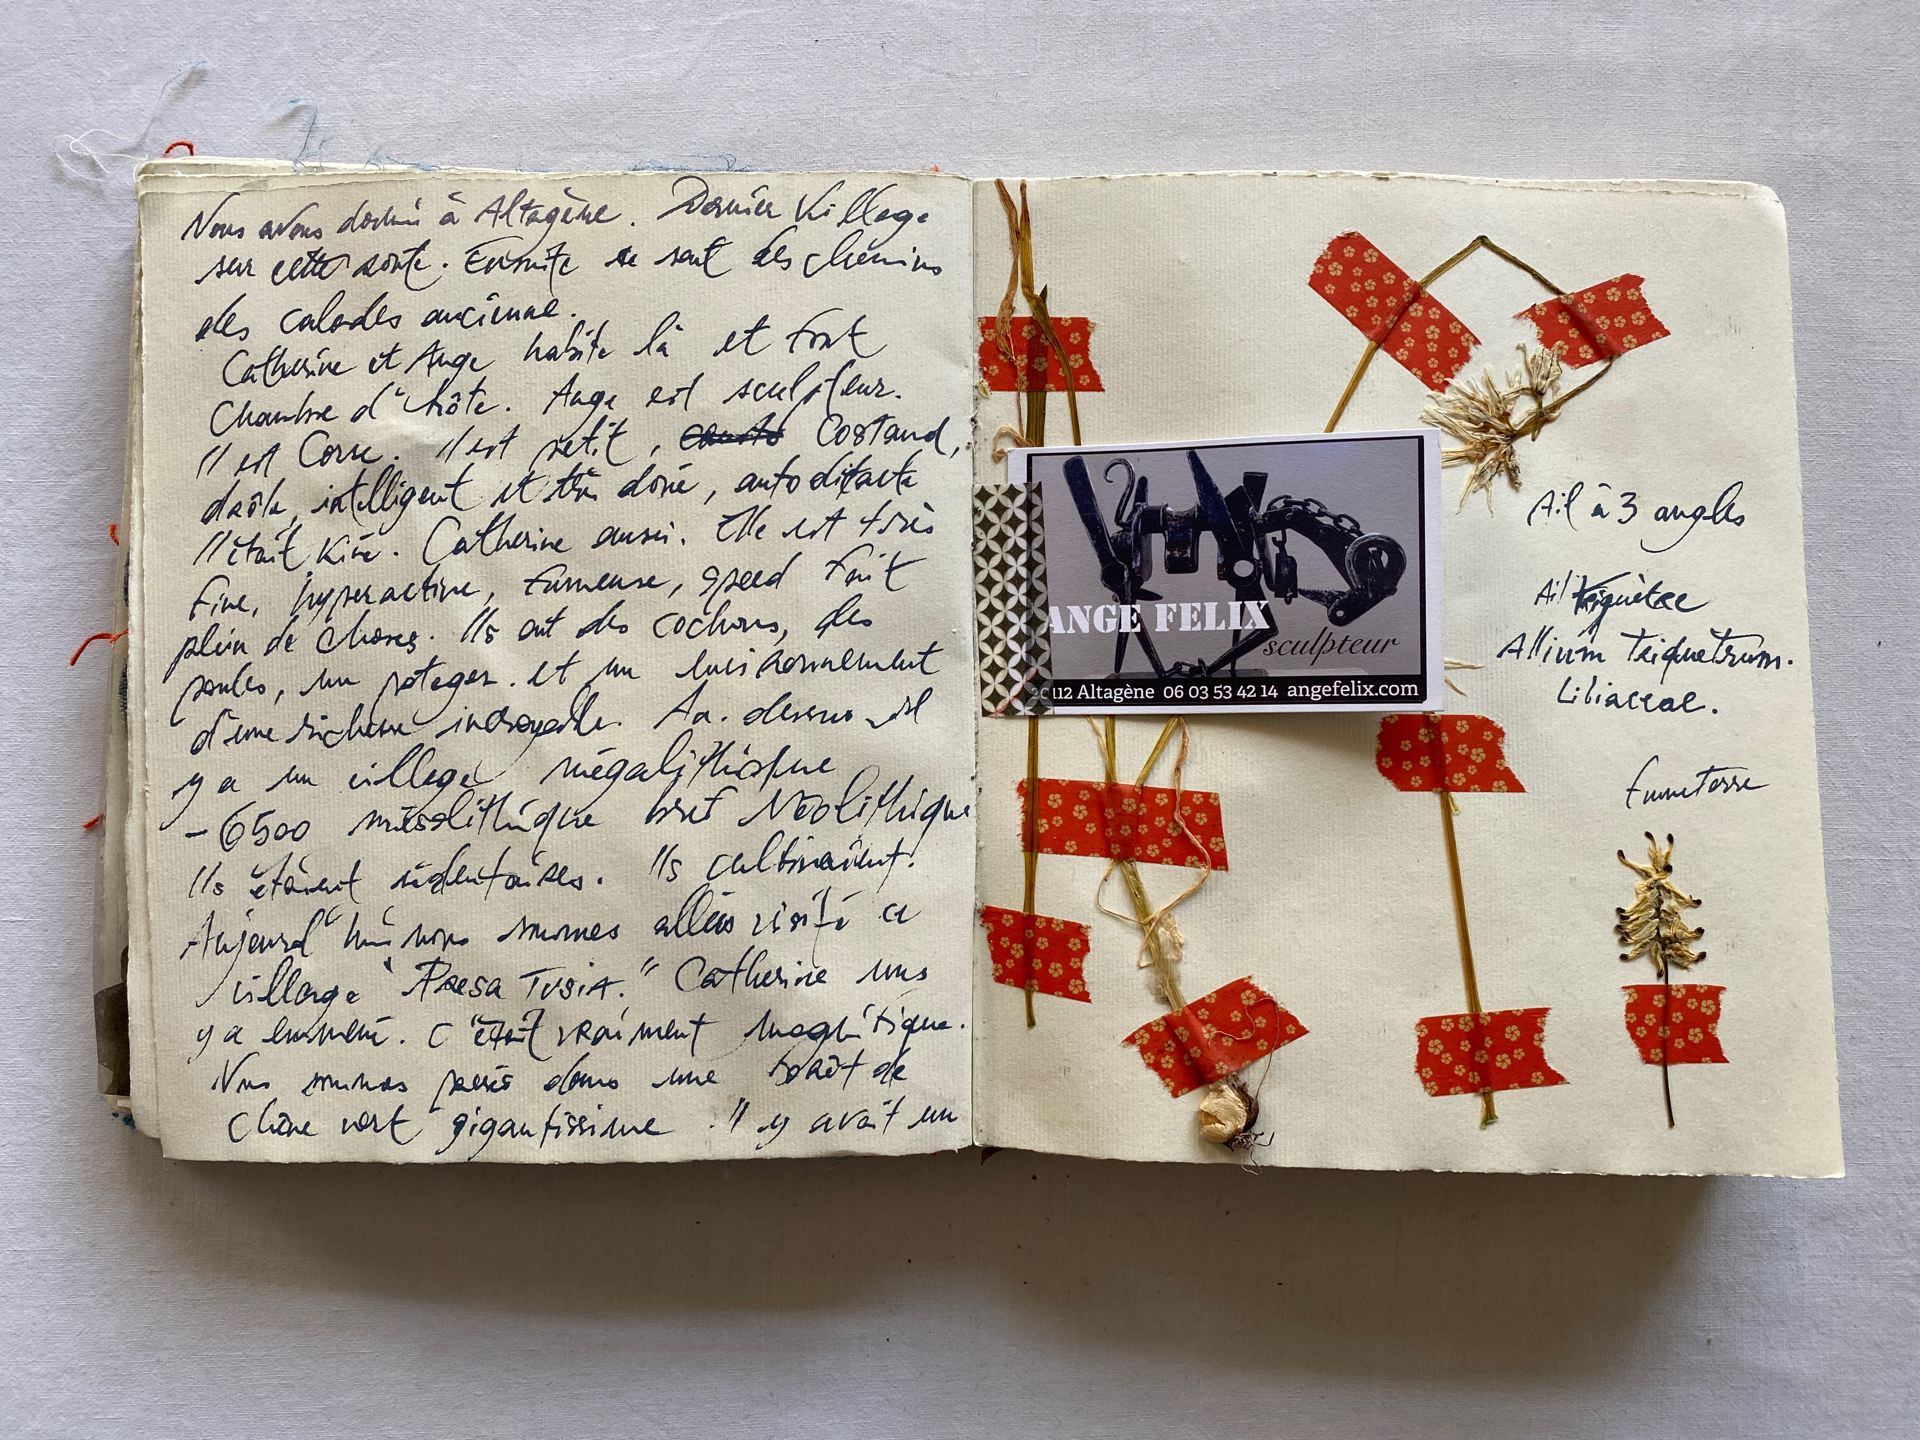 Nous avons dormi à Altagène. Dernier village
sur cette route. Ensuite ce sont des chemins
des calades ancienne.
Catherine et Ange habite là et font
Chambre d'hôte. Ange est sculpteur.
Il est Corse. Il est petit, Costaud,
drôle, intelligent et très doué, autoditacte
Il était Kiné. Catherine aussi. Elle est très
fine, hyperactive, fumeuse, speed fait
plein de choses. Ils ont des cochons, des
poules, un potager. et un environnement
d'une richesse incroyable. Au. dessus il
y a un village mégalithique
- 6500 mésolithique bref Néolithique
Ils étaient sédentaires. Ils cultivaient.
Aujourd'hui nous sommes allés visité ce
village "Presa Tusia." Catherine nous
y a emmené. C'était vraiment magnitique.
Nous sommes passés dans une forêt de
chêne vert gigantissime. Il y avait un
ANGE FELIX
sculpteur
Altagène 06 03 53 42 14 angefelix.com
Ail à 3 angles
Ail triquètre
Allium triquètrum.
Liliaceae.
Fumeterre